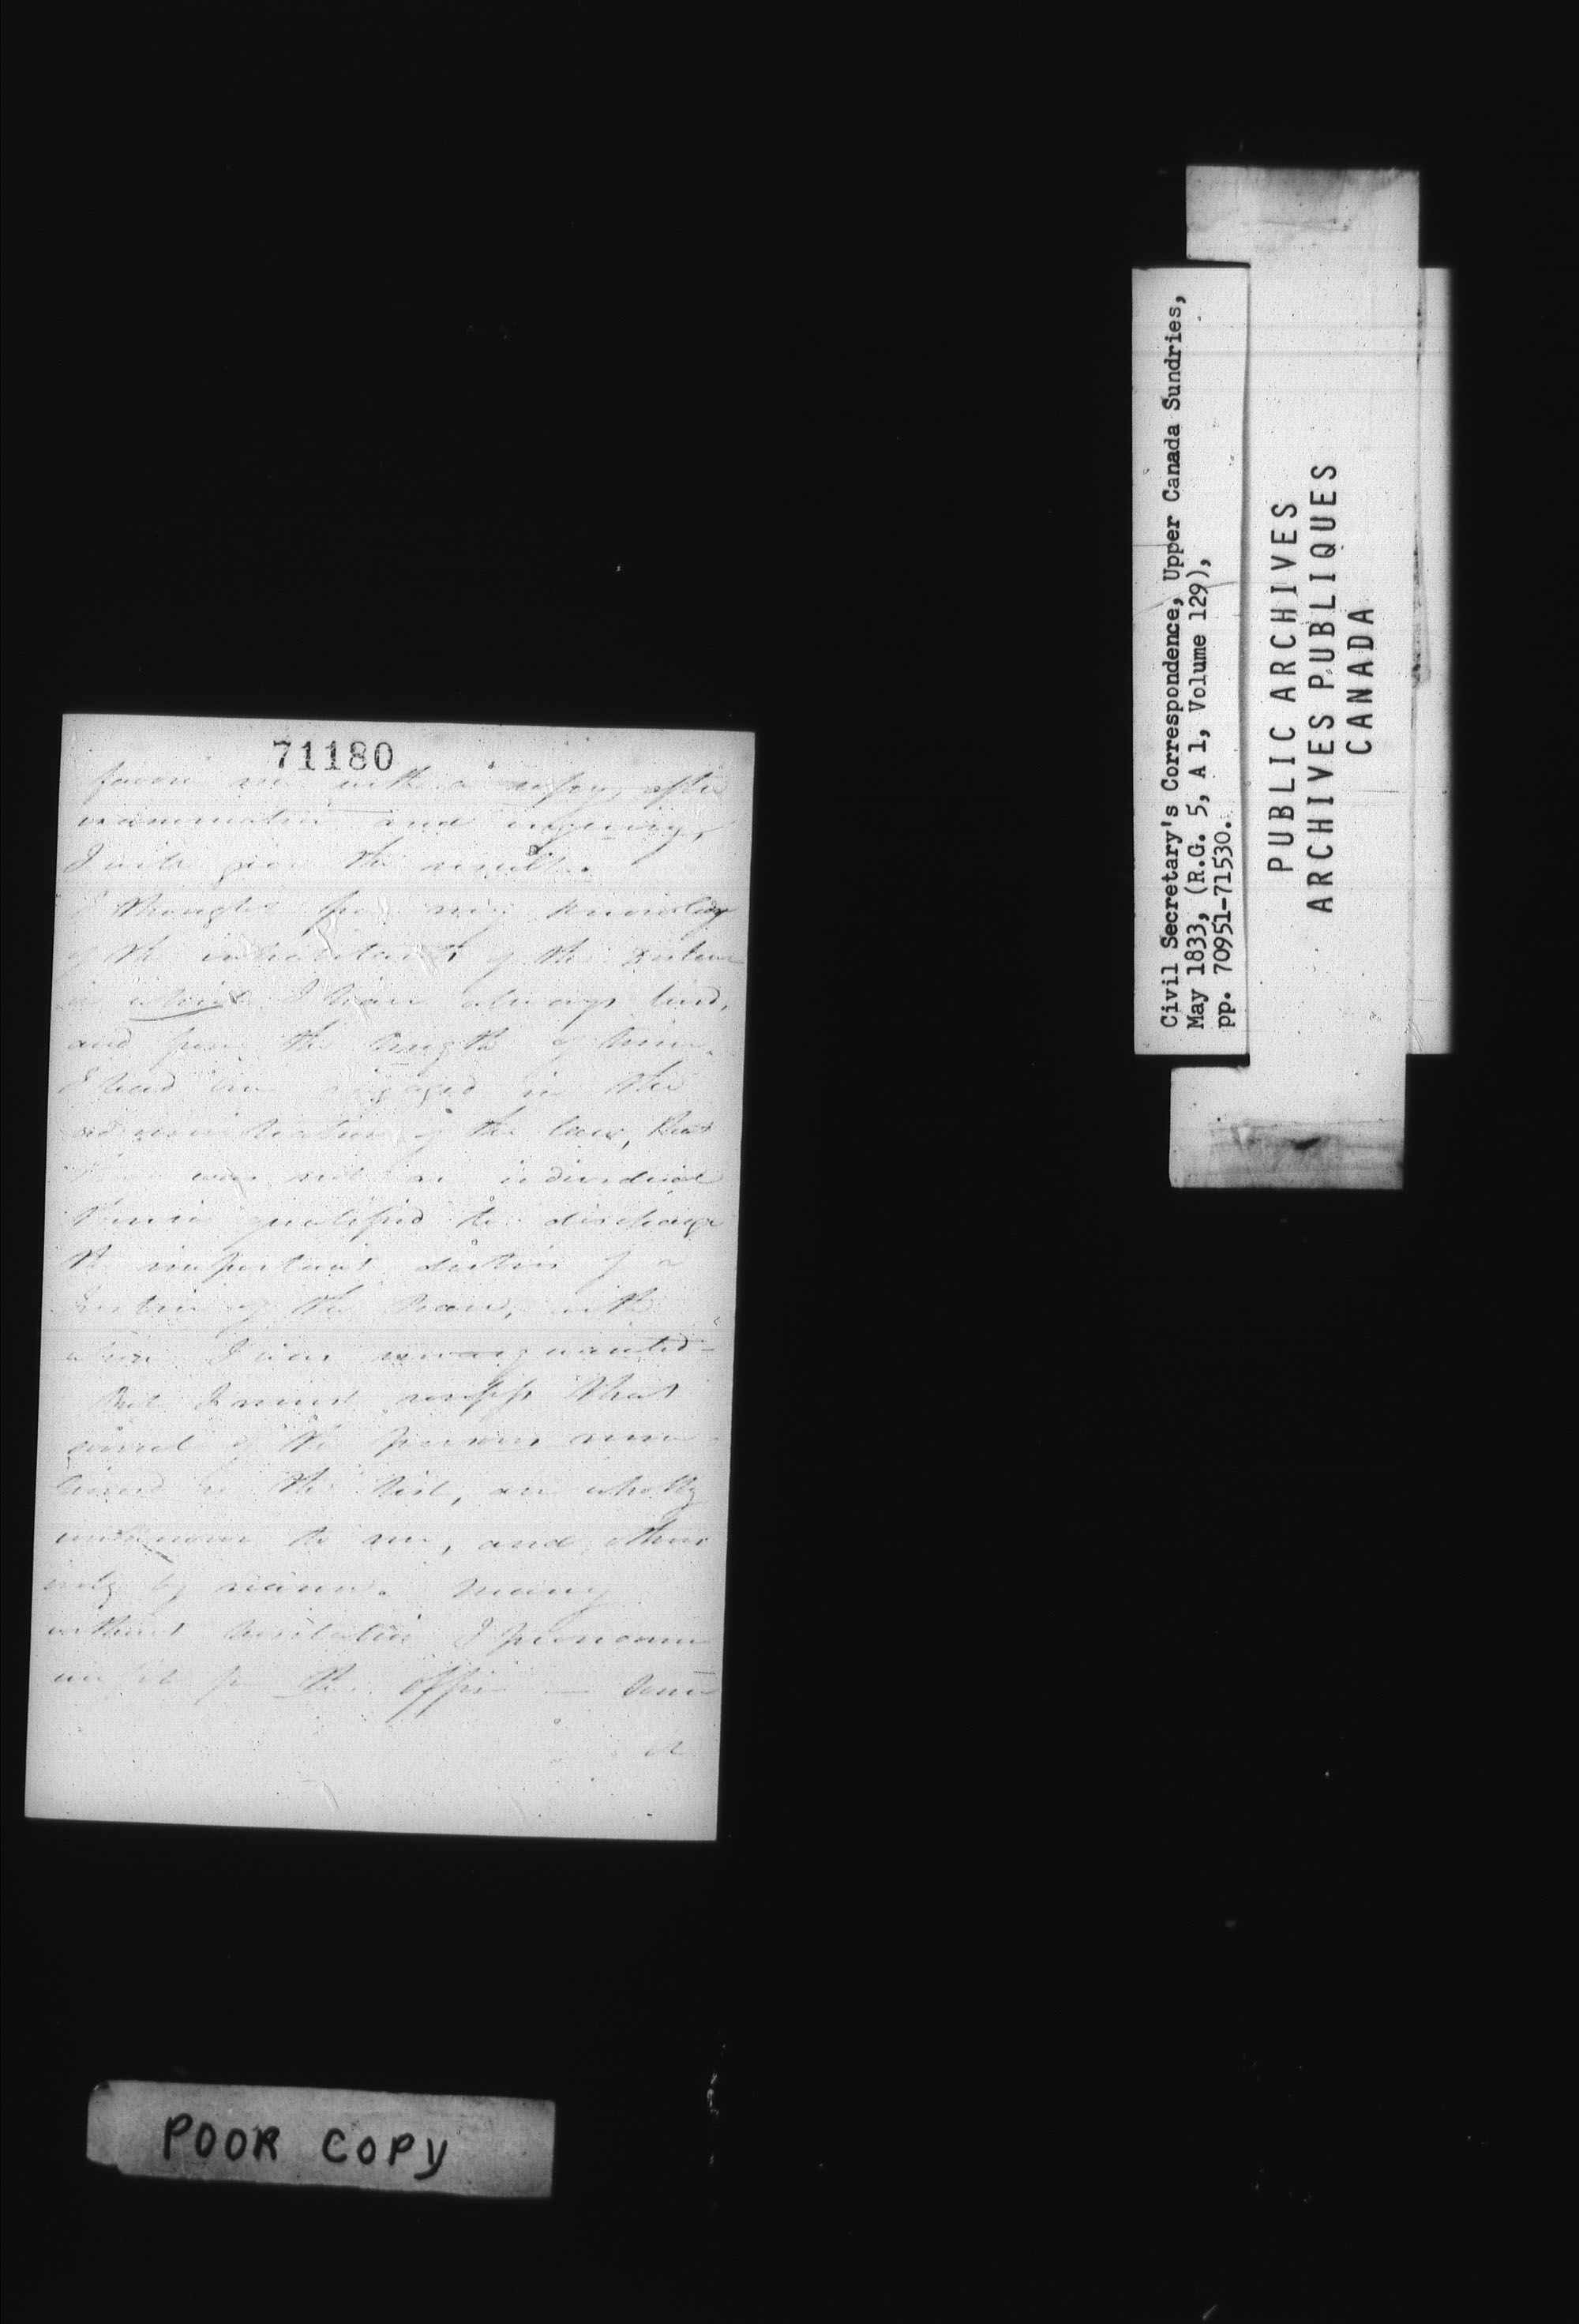 71180
favor me with a copy, after
examination and enquiry,
I will give the result.
I thought from my knowledge
of the inhabitants of the District
in which I have always lived,
and from the length of time
I had been engaged in the
administration of the law, that
there was not an individual
therein qualified to discharge
the important duties of a
Justice of the Peace, with
whom I was unacquainted -
But I must confess that
several of the persons con-
tained in the list, are wholly
unknown to me, and others
only by name. Many
without hesitation I pronounce
unfit for the office — some
Civil Secretary's Correspondence, Upper Canada Sundries,
May 1833, (R.G. 5, A 1, Volume 129),
pp. 70951-71530.
PUBLIC ARCHIVES
ARCHIVES PUBLIQUES
CANADA
POOR COPY